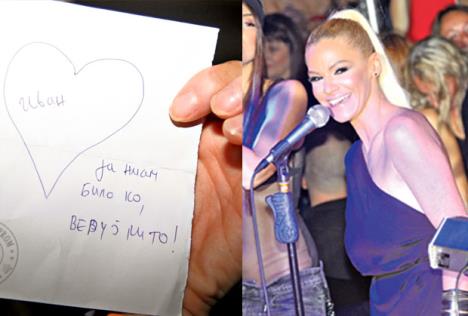 Иван
ја нисам
било ко,
ВЕРУЈ МИ ТО!